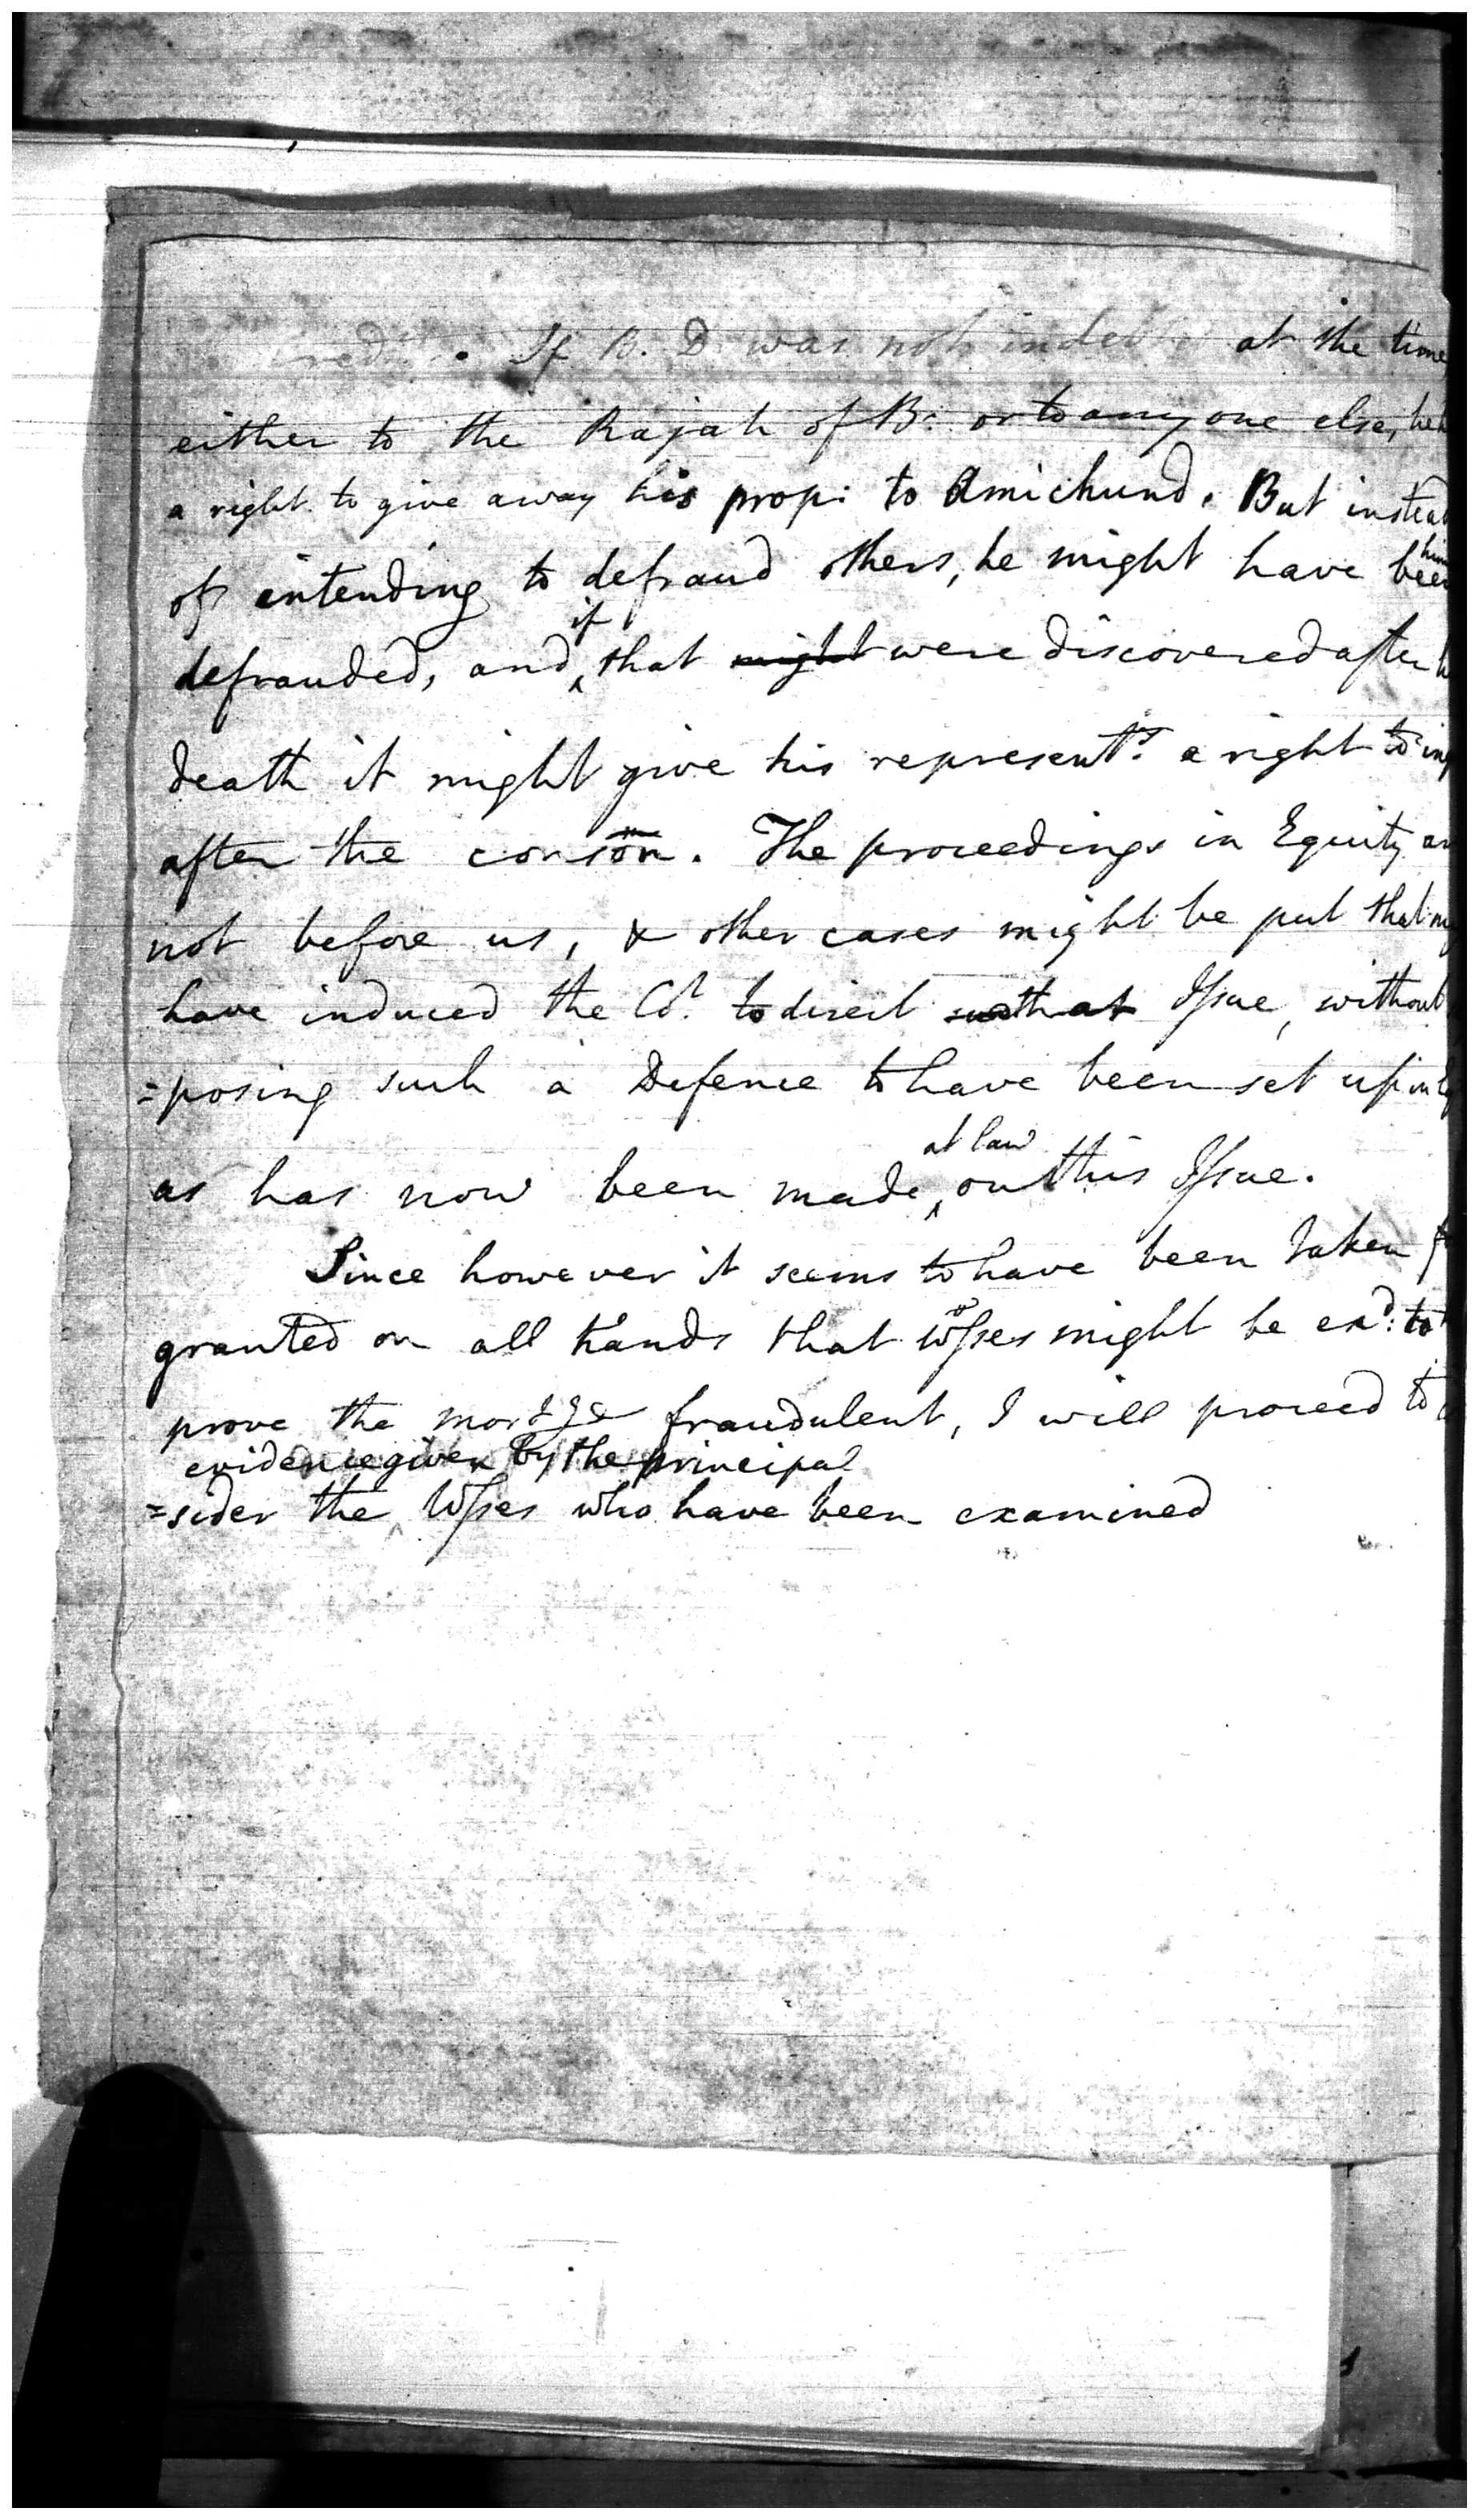 If B. D was not at the time
either to the Rajah of B: or to any one else, he
a right to give away his prop: to Amichund. But instead
of intending to defraud others, he might have been him
defrauded, and if that might were discovered after
death it might give his represent:ves a right to
after the conson. The proceedings in Equity
not before us, & other cases might be put that
have induced the Ct. to direct that Issue, without
=posing such a Defence to have been set up in
as has now been made at law on this Issue.
Since however it seems to have been taken
granted on all hands that Wsses might be exd: to
prove the mortge fraudulent, I will proceed to
evidence given by the principal
=sider the Wsses who have been examined